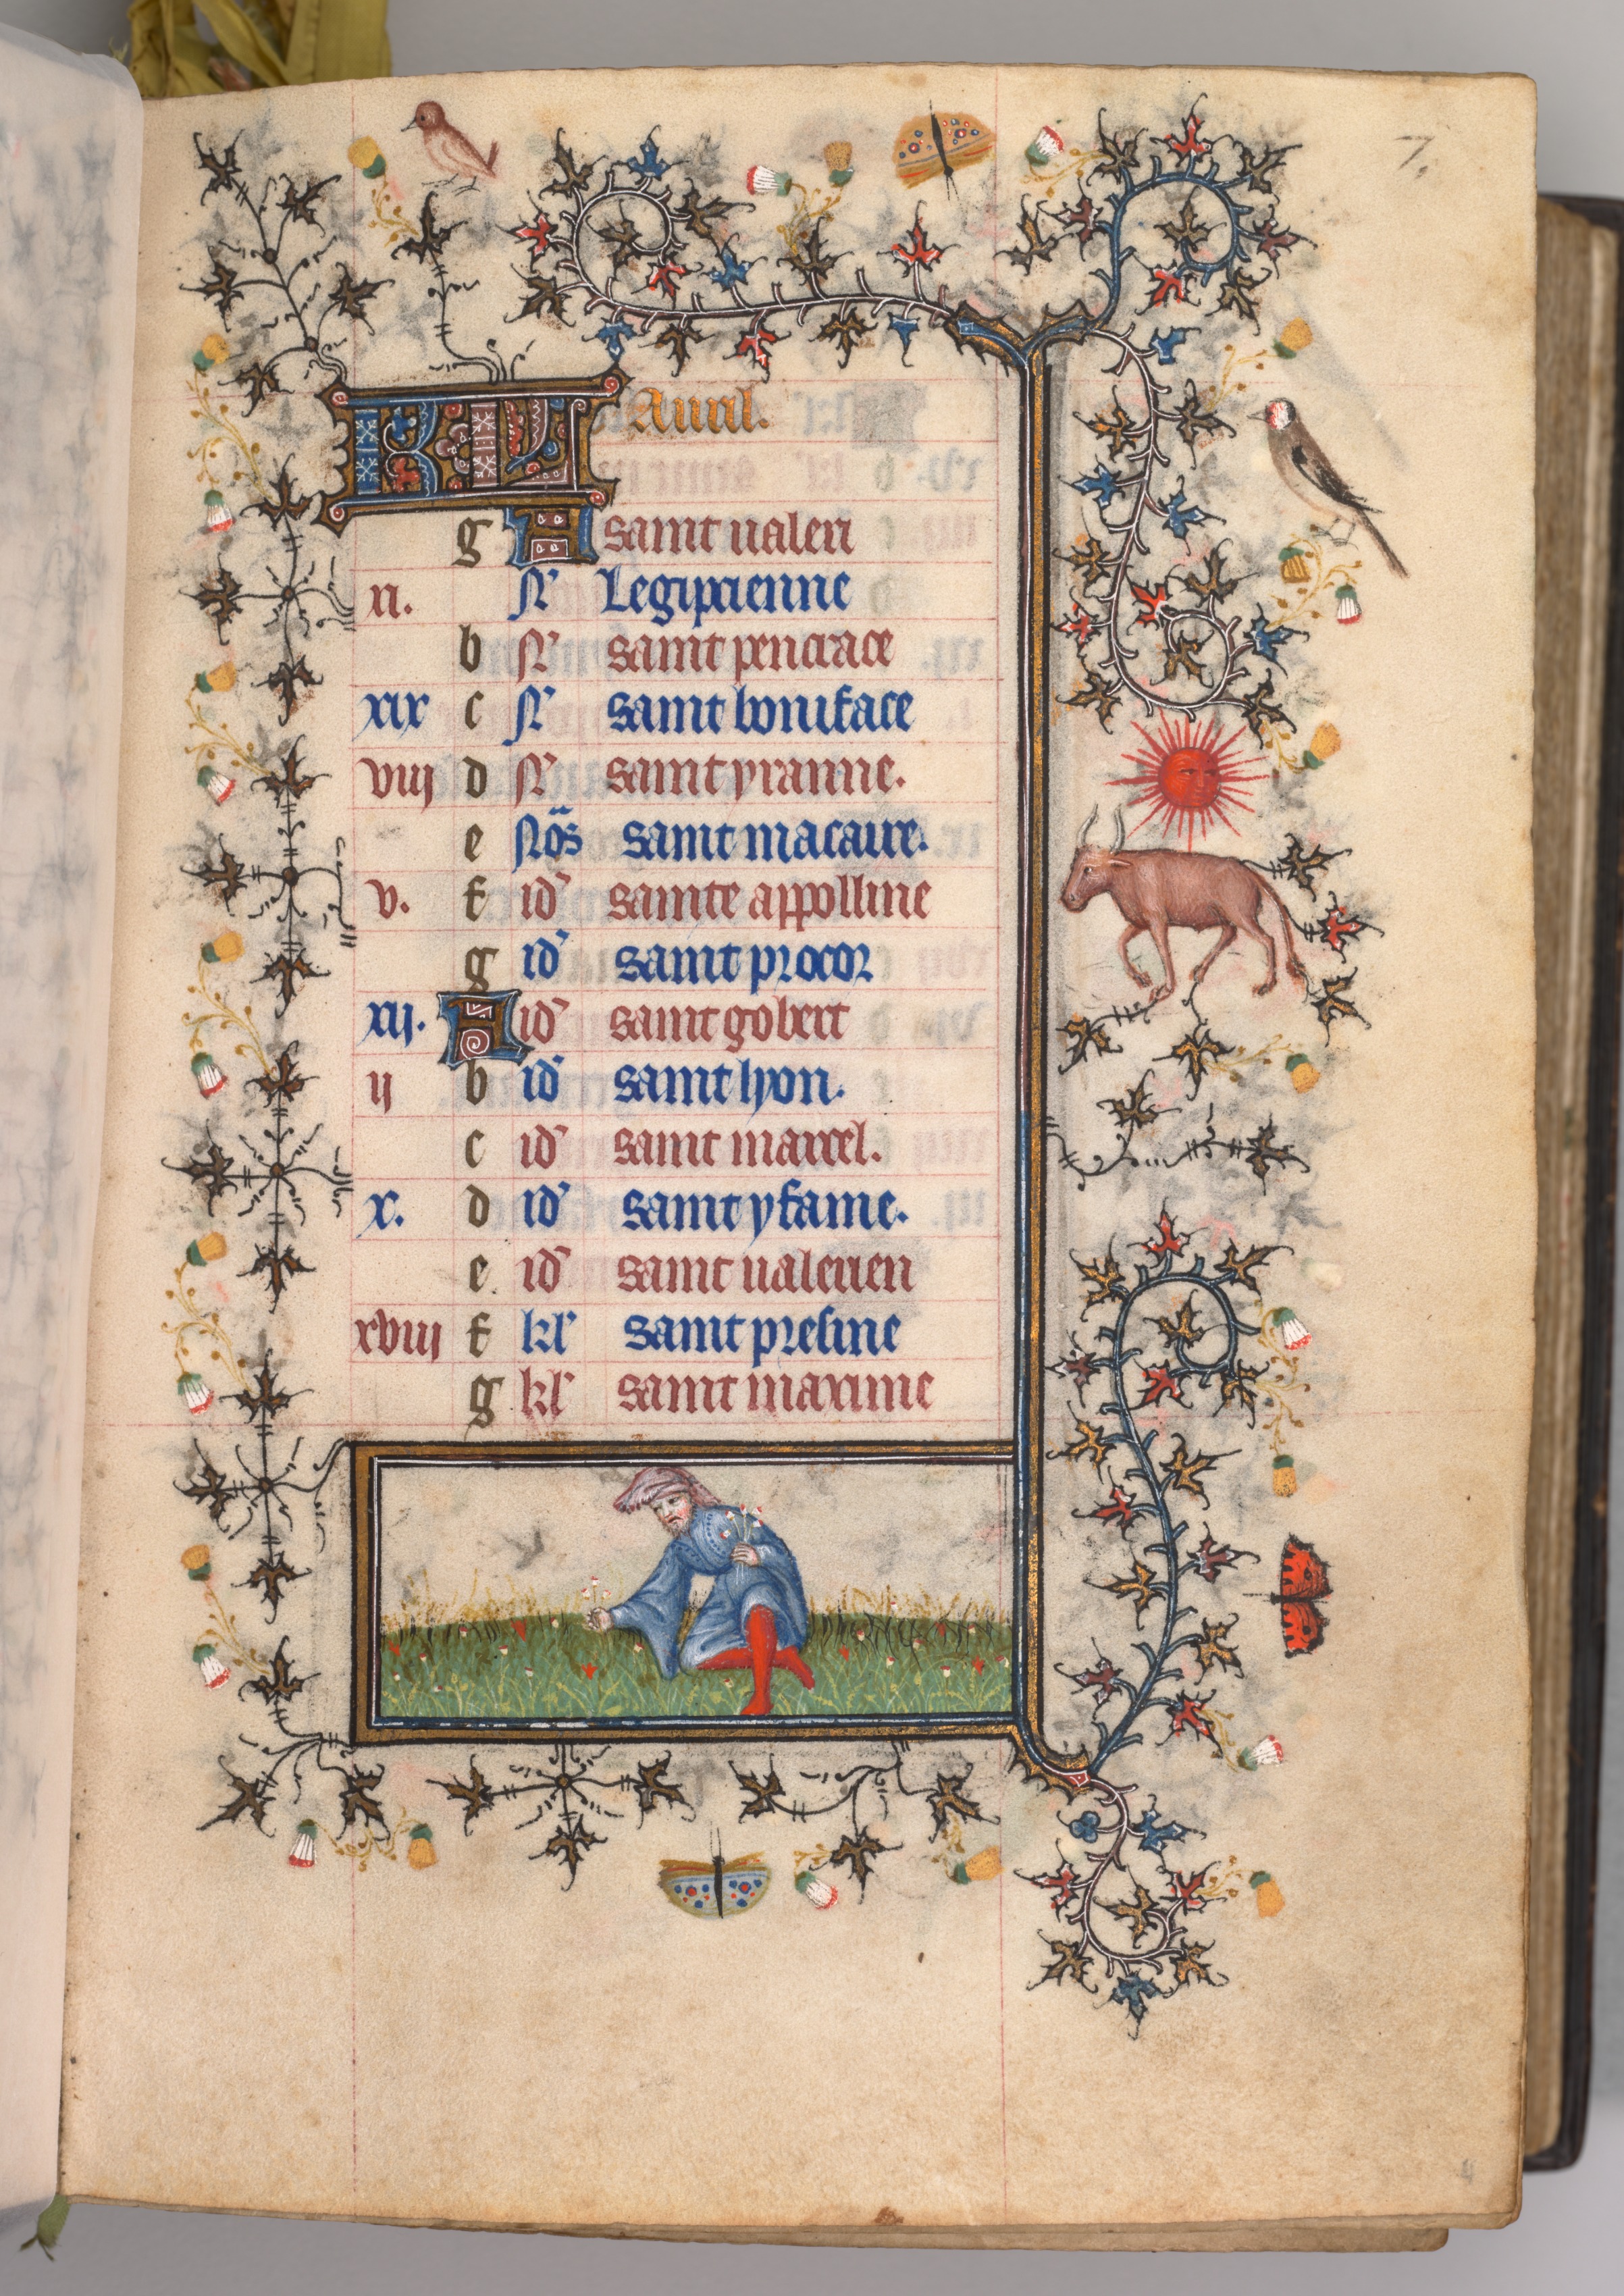 7.
KaL Auril.
g A saint ualeri
xi. N' Legipcienne
b N' saint pencrace
xix c N' saint boniface
viij d N' saint yranne.
e Nōs saint macaire.
v. f id' sainte appolline
g id' saint procor
xij. A id' saint gobert
ij b id' saint lyon.
c id' saint marcel.
x. d id' saint yfame.
e id' saint ualerien
xviij f kl' saint presine
g kl' saint maxime